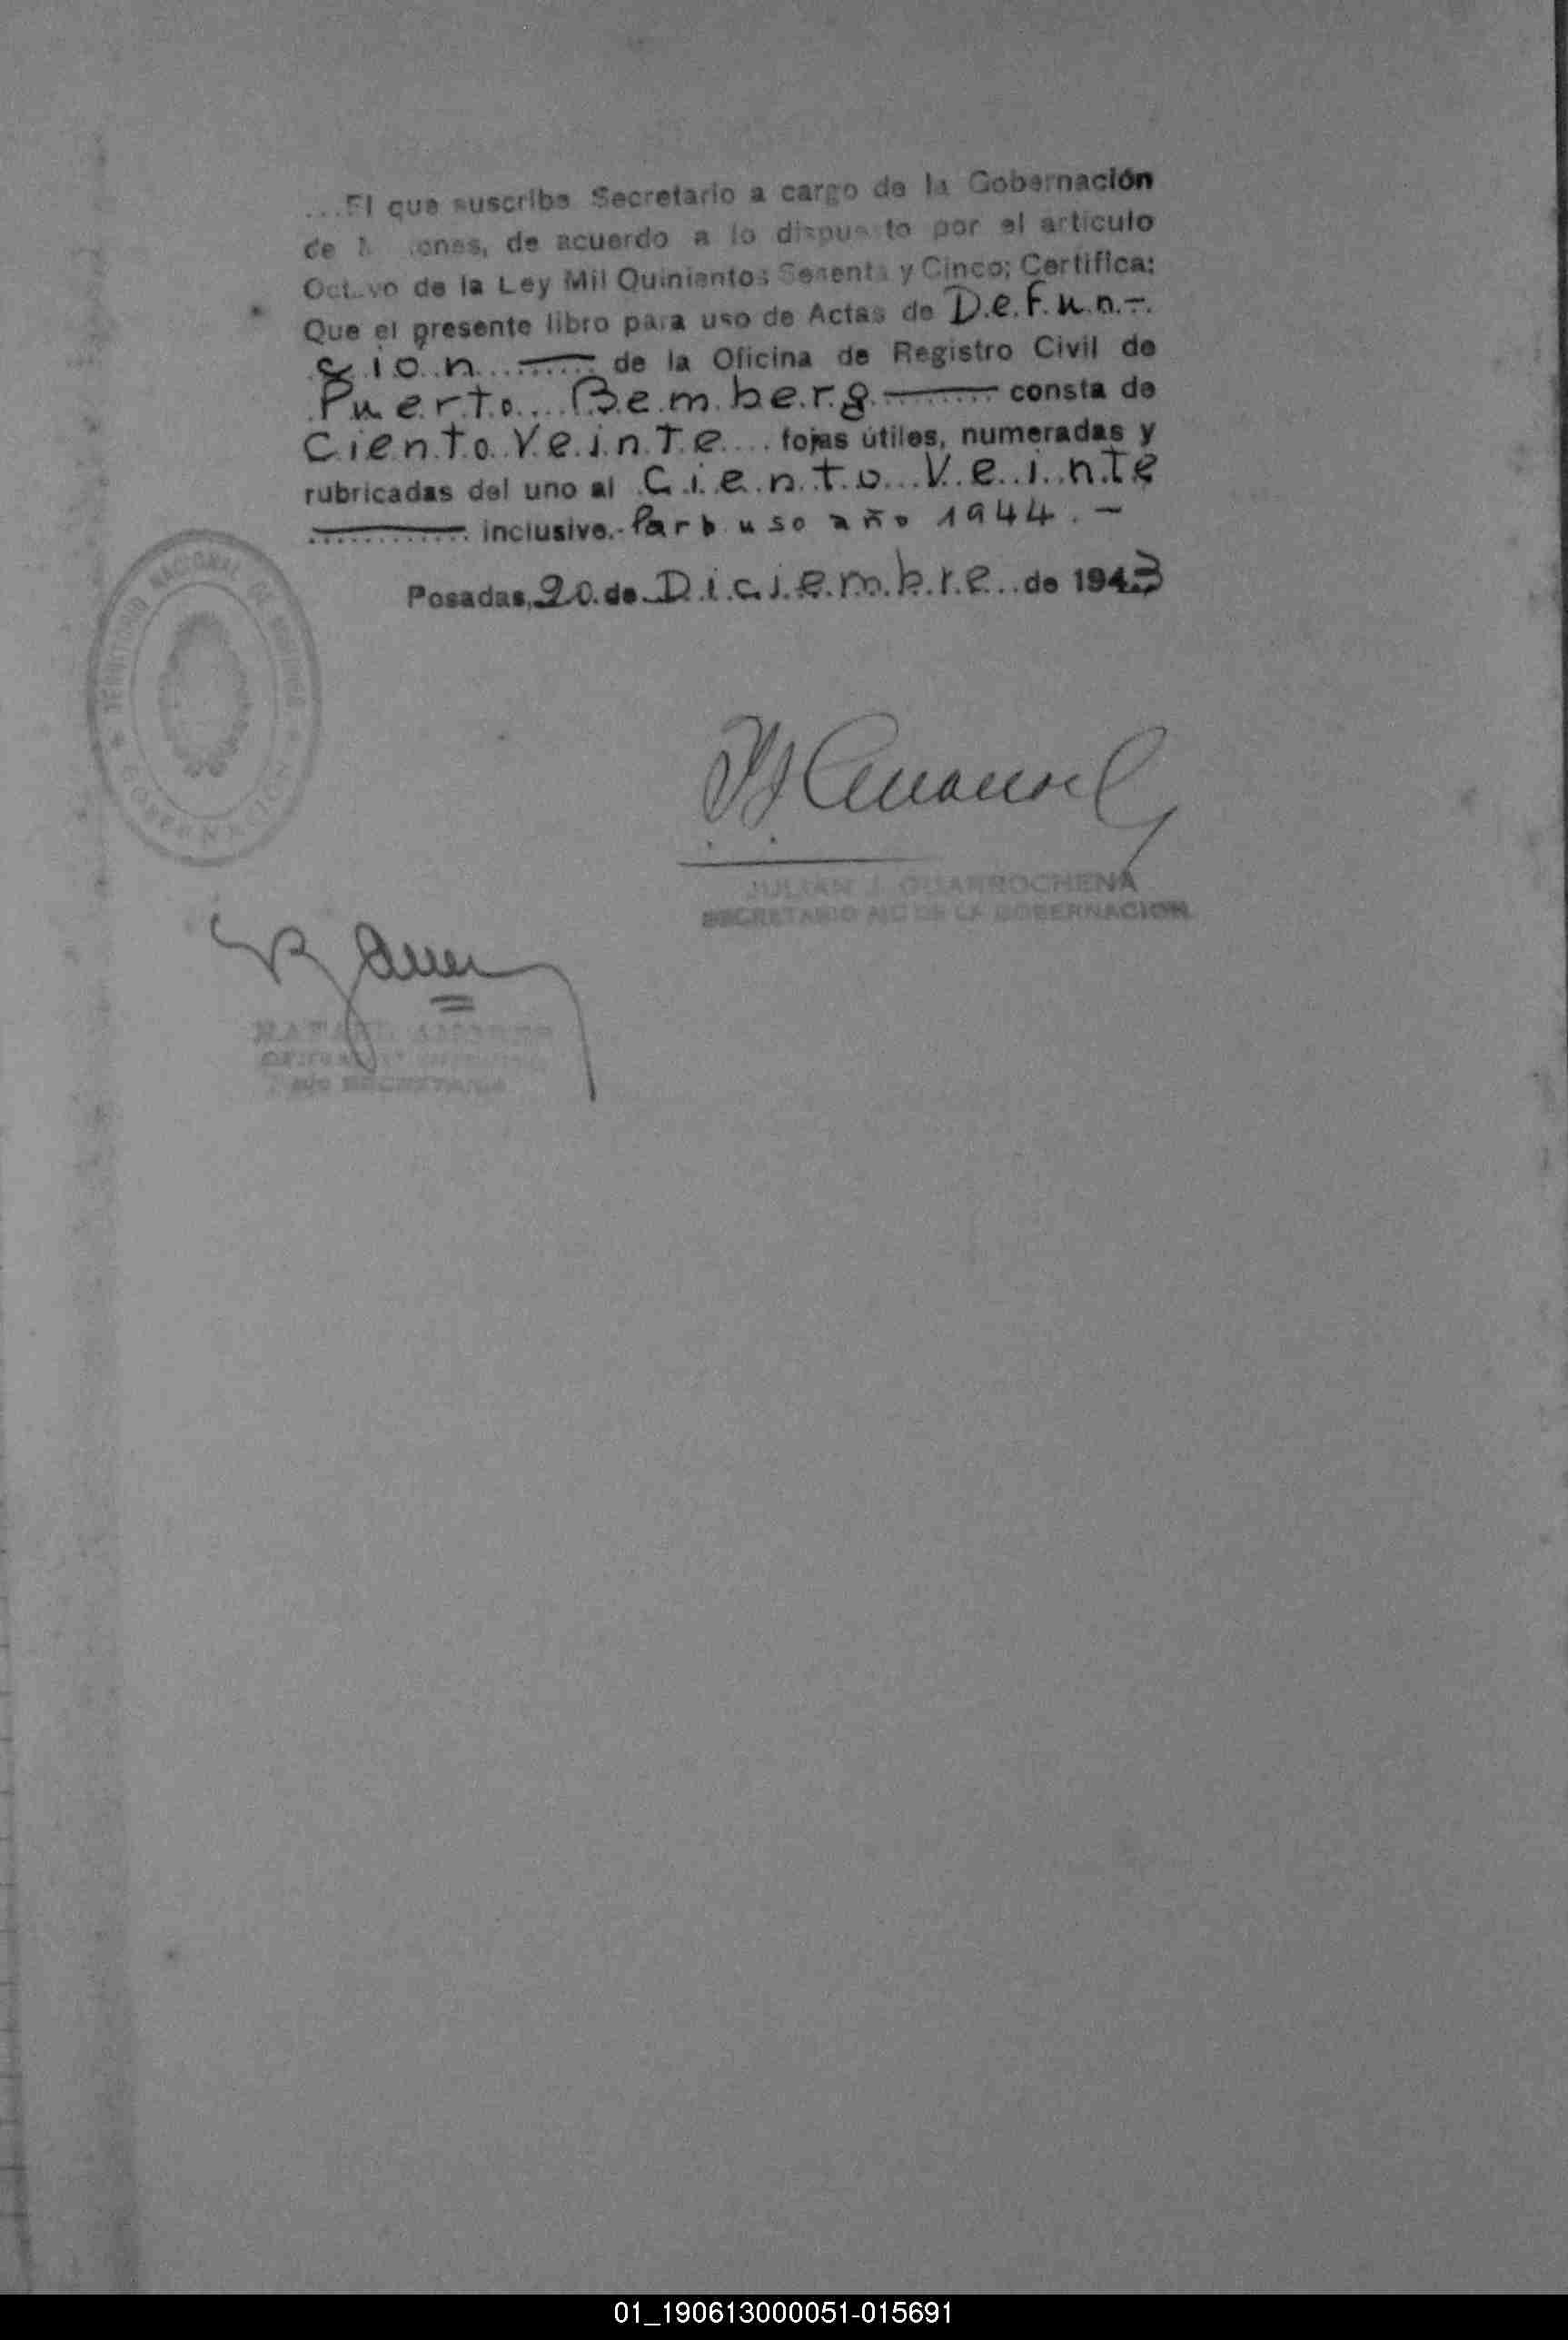 ...El que suscribe Secretario a cargo de la Gobernación
de ones, de acuerdo a lo dispuesto por el artículo
Octavo de la Ley Mil Quinientos Sesenta y Cinco; Certifica:
Que el presente libro para uso de Actas de Defun-
cion de la Oficina de Registro Civil de
Puerto Bemberg consta de
Ciento Veinte fojas útiles, numeradas y
rubricadas del uno al Ciento Veinte
inclusive.- Para uso año 1944.-
Posadas, 20 de Diciembre de 1943
TERRITORIO NACIONAL DE MISIONES
GOBERNACION
JULIAN J. GUARROCHENA
SECRETARIO A/C DE LA GOBERNACION
RAFAEL
a/c SECRETARIA
01_190613000051-015691